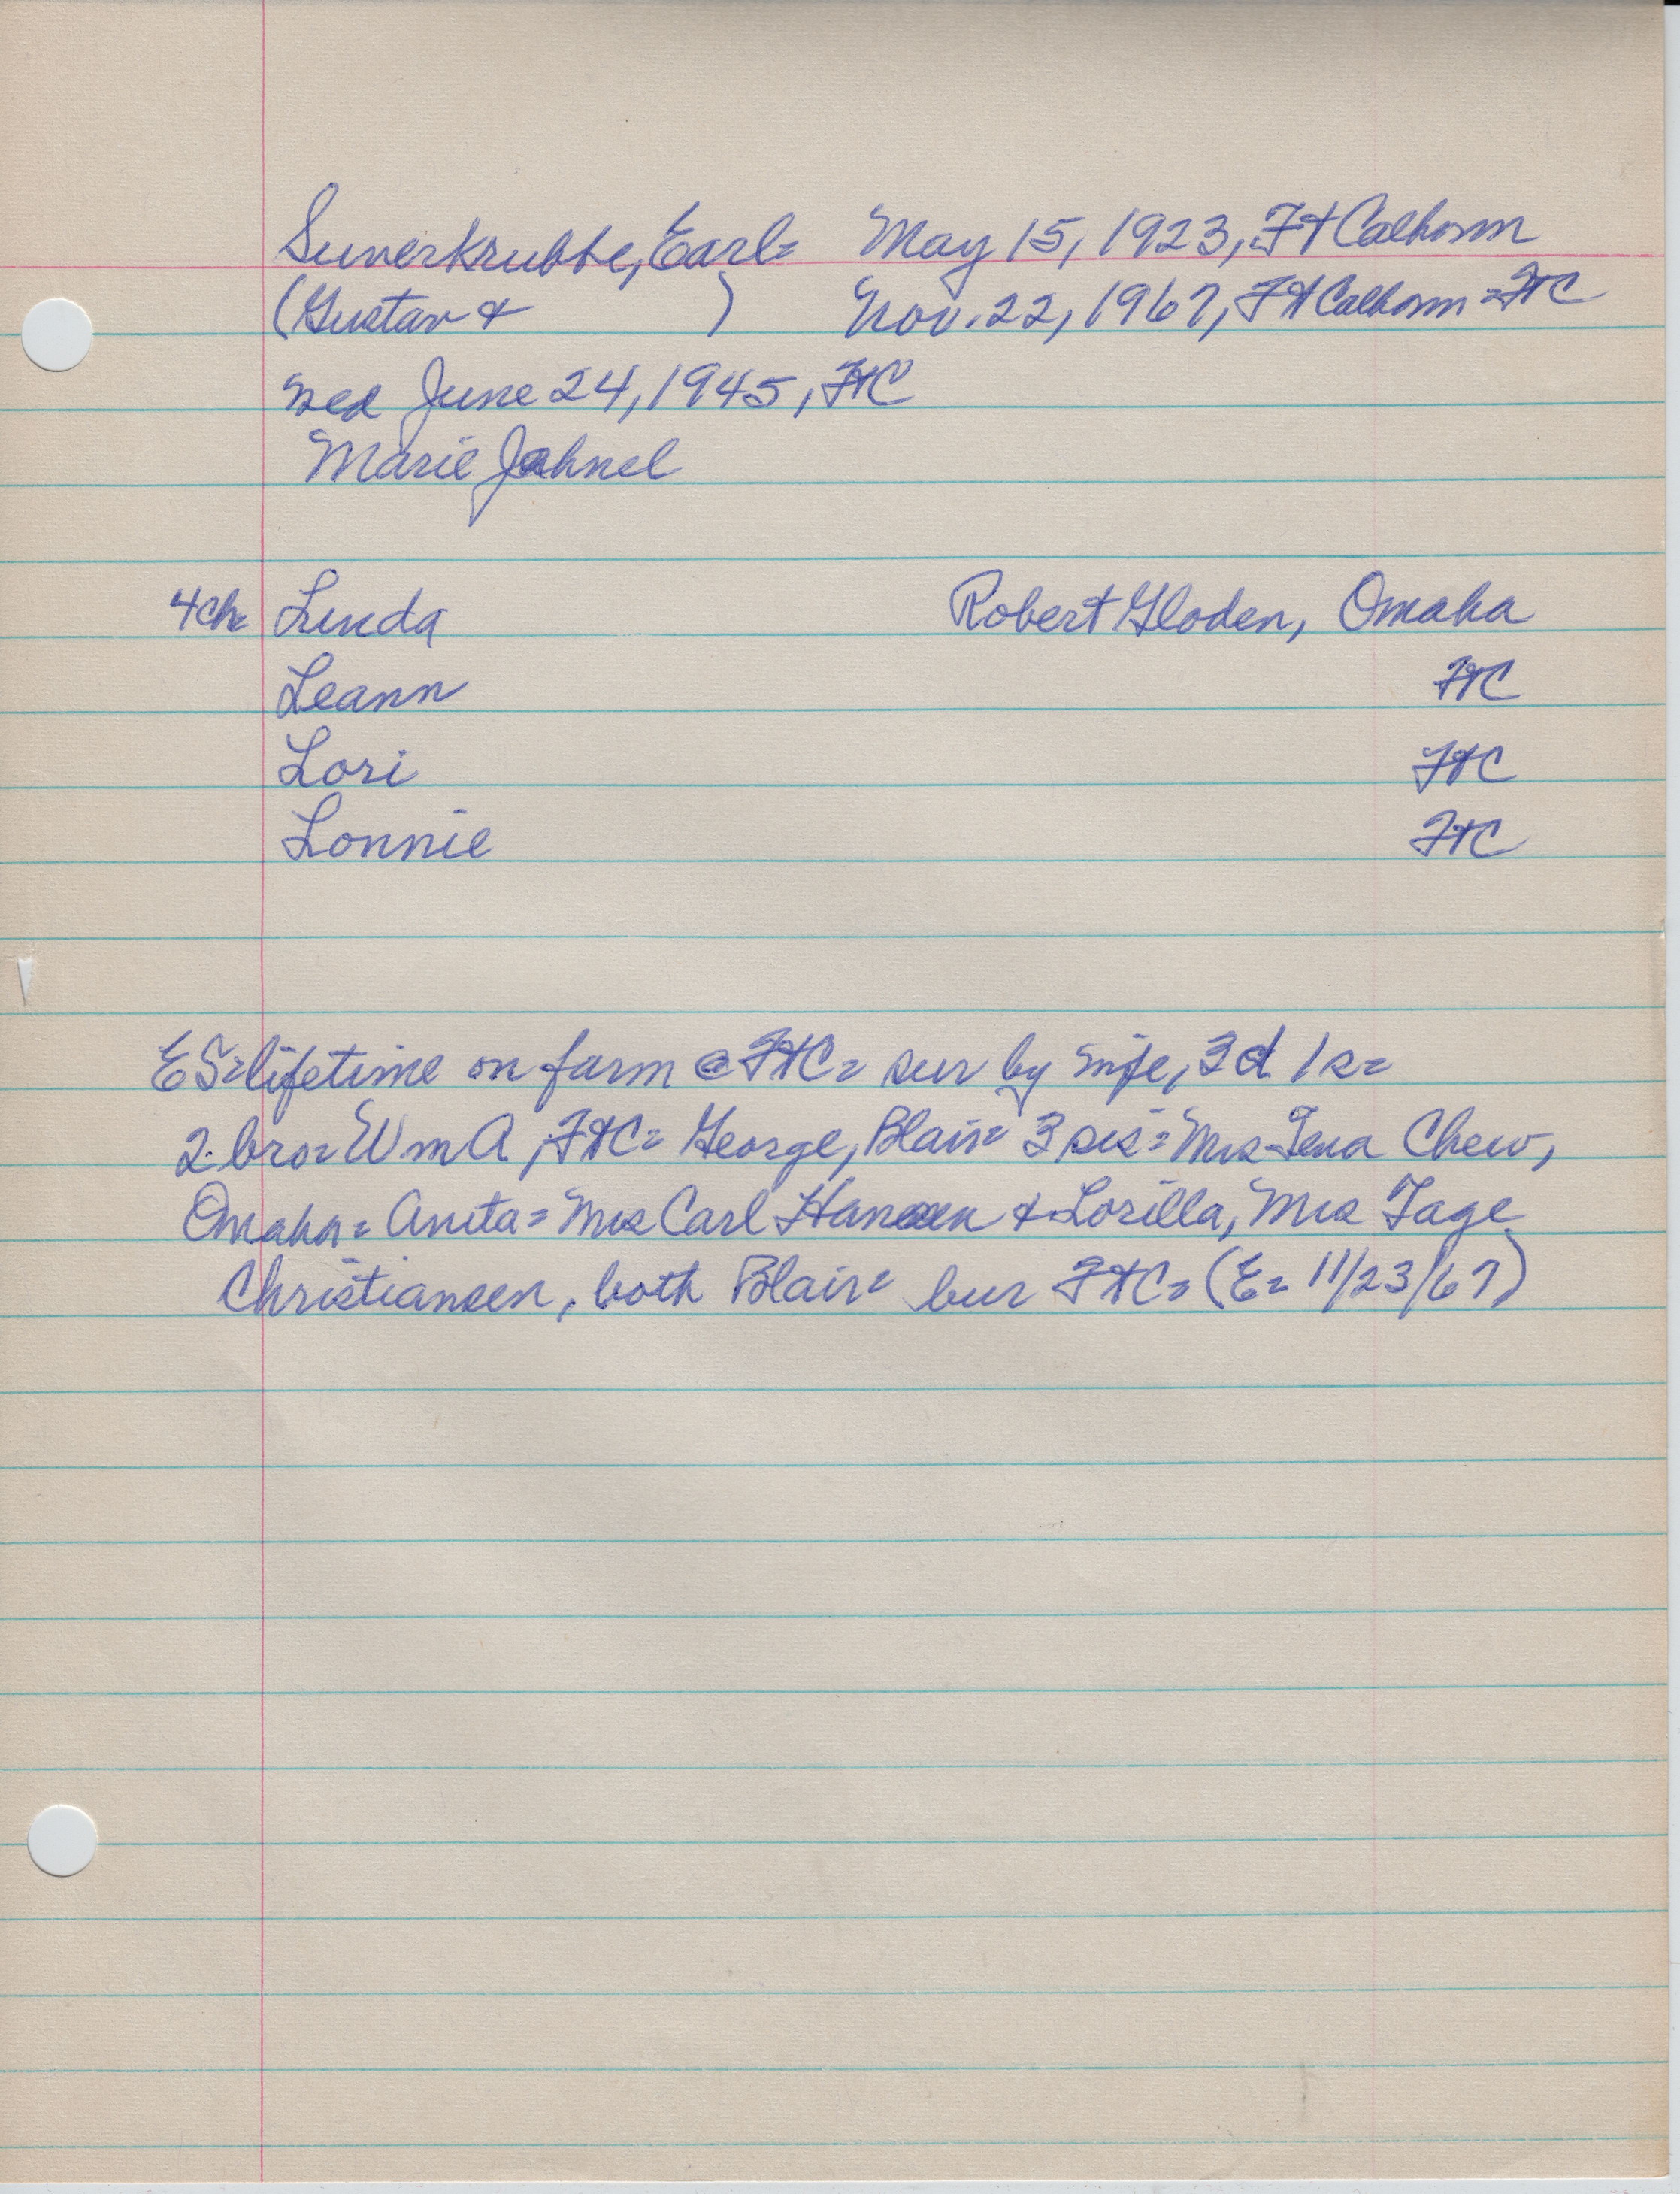 Suverkrubbe, Earl= May 15, 1923, Ft Calhoun
(Gustav & ) Nov. 22, 1967, Ft Calhoun = FtC
wed June 24, 1945, FtC
Marie Jahnel
4ch Linda Robert Gloden, Omaha
Leann FtC
Lori FtC
Lonnie FtC
ES= lifetime on farm @ FtC= sur by wife, 3d 1s=
2 bro= Wm A, FtC= George, Blair= 3 sis= Mrs Tena Chew,
Omaha= Anita= Mrs Carl Hansen & Lorilla, Mrs Tage
Christiansen, both Blair= bur FtC= (E= 11/23/67)